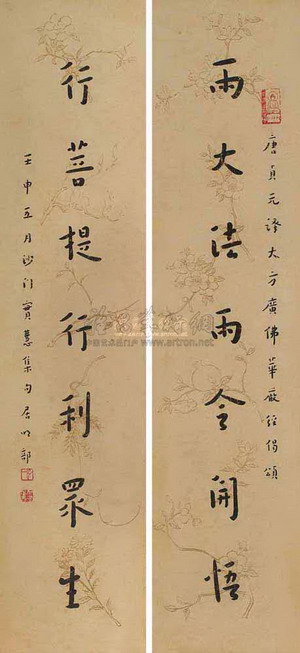 唐貞元譯大方廣佛華嚴經偈頌
雨大法雨令開悟
行菩提行利眾生
壬申五月沙門
www.artron.net